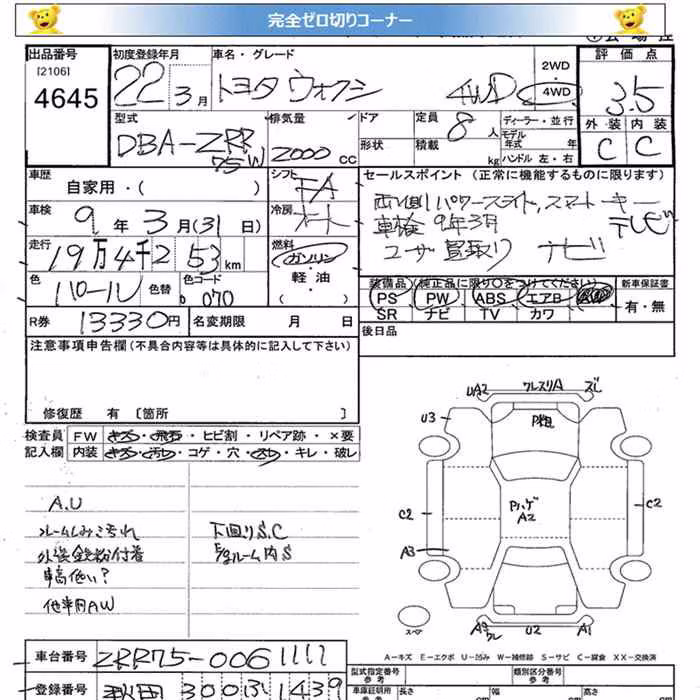 完全ゼロ切りコーナー
出品番号 初度登録年月 車名・グレード 評価点
[2106]
4645 22年 3月 トヨタ ヴォクシー 4WD 2WD 4WD 3.5
外装 内装
C C
型式 排気量 ドア 定員 ディーラー・並行
DBA-ZRR75W 2000cc 8人 モデル年式 年
形状 積載 kg ハンドル 左・右
車歴 シフト セールスポイント(正常に機能するものに限ります)
自家用・( ) FA
車検 9年 3月(31日) 冷房 オート
両側パワースライド、スマートキー
車検9年3月 テレビ
ユーザ買取り ナビ
走行 19万4千253km 燃料 ガソリン
軽・油
( )
色 パール 色替 色コード 070
装備品(純正品に限り○をつけてください) 新車保証書
PS PW ABS エアB AW 有・無
SR ナビ TV カワ
R券 13330円 名変期限 月 日
後日品
注意事項申告欄(不具合内容等は具体的に記入して下さい)
修復歴 有 [箇所 ]
検査員 FW キズ・飛石・ヒビ割・リペア跡・×要
記入欄 内装 キズ・汚レ・コゲ・穴・スレ・キレ・破レ
A.U
ルームしみこ汚れ
外装鉄粉付着
車高低い?
他車用AW
下回りS.C
E/gルーム内S
UA2 ワレスリA ズレ
U3 P飛
C2 Pハゲ A2 C2
A3
スペア A3 ワレ U2 A1
A-キズ E-エクボ U-凹み W-補修跡 S-サビ C-腐食 X-要交換 XX-交換済
車台番号 ZRR75-0061111
登録番号 秋田 300 ふ 1439
型式指定番号 類別区分番号
車庫証明用参考 長さ cm 幅 cm 高さ cm